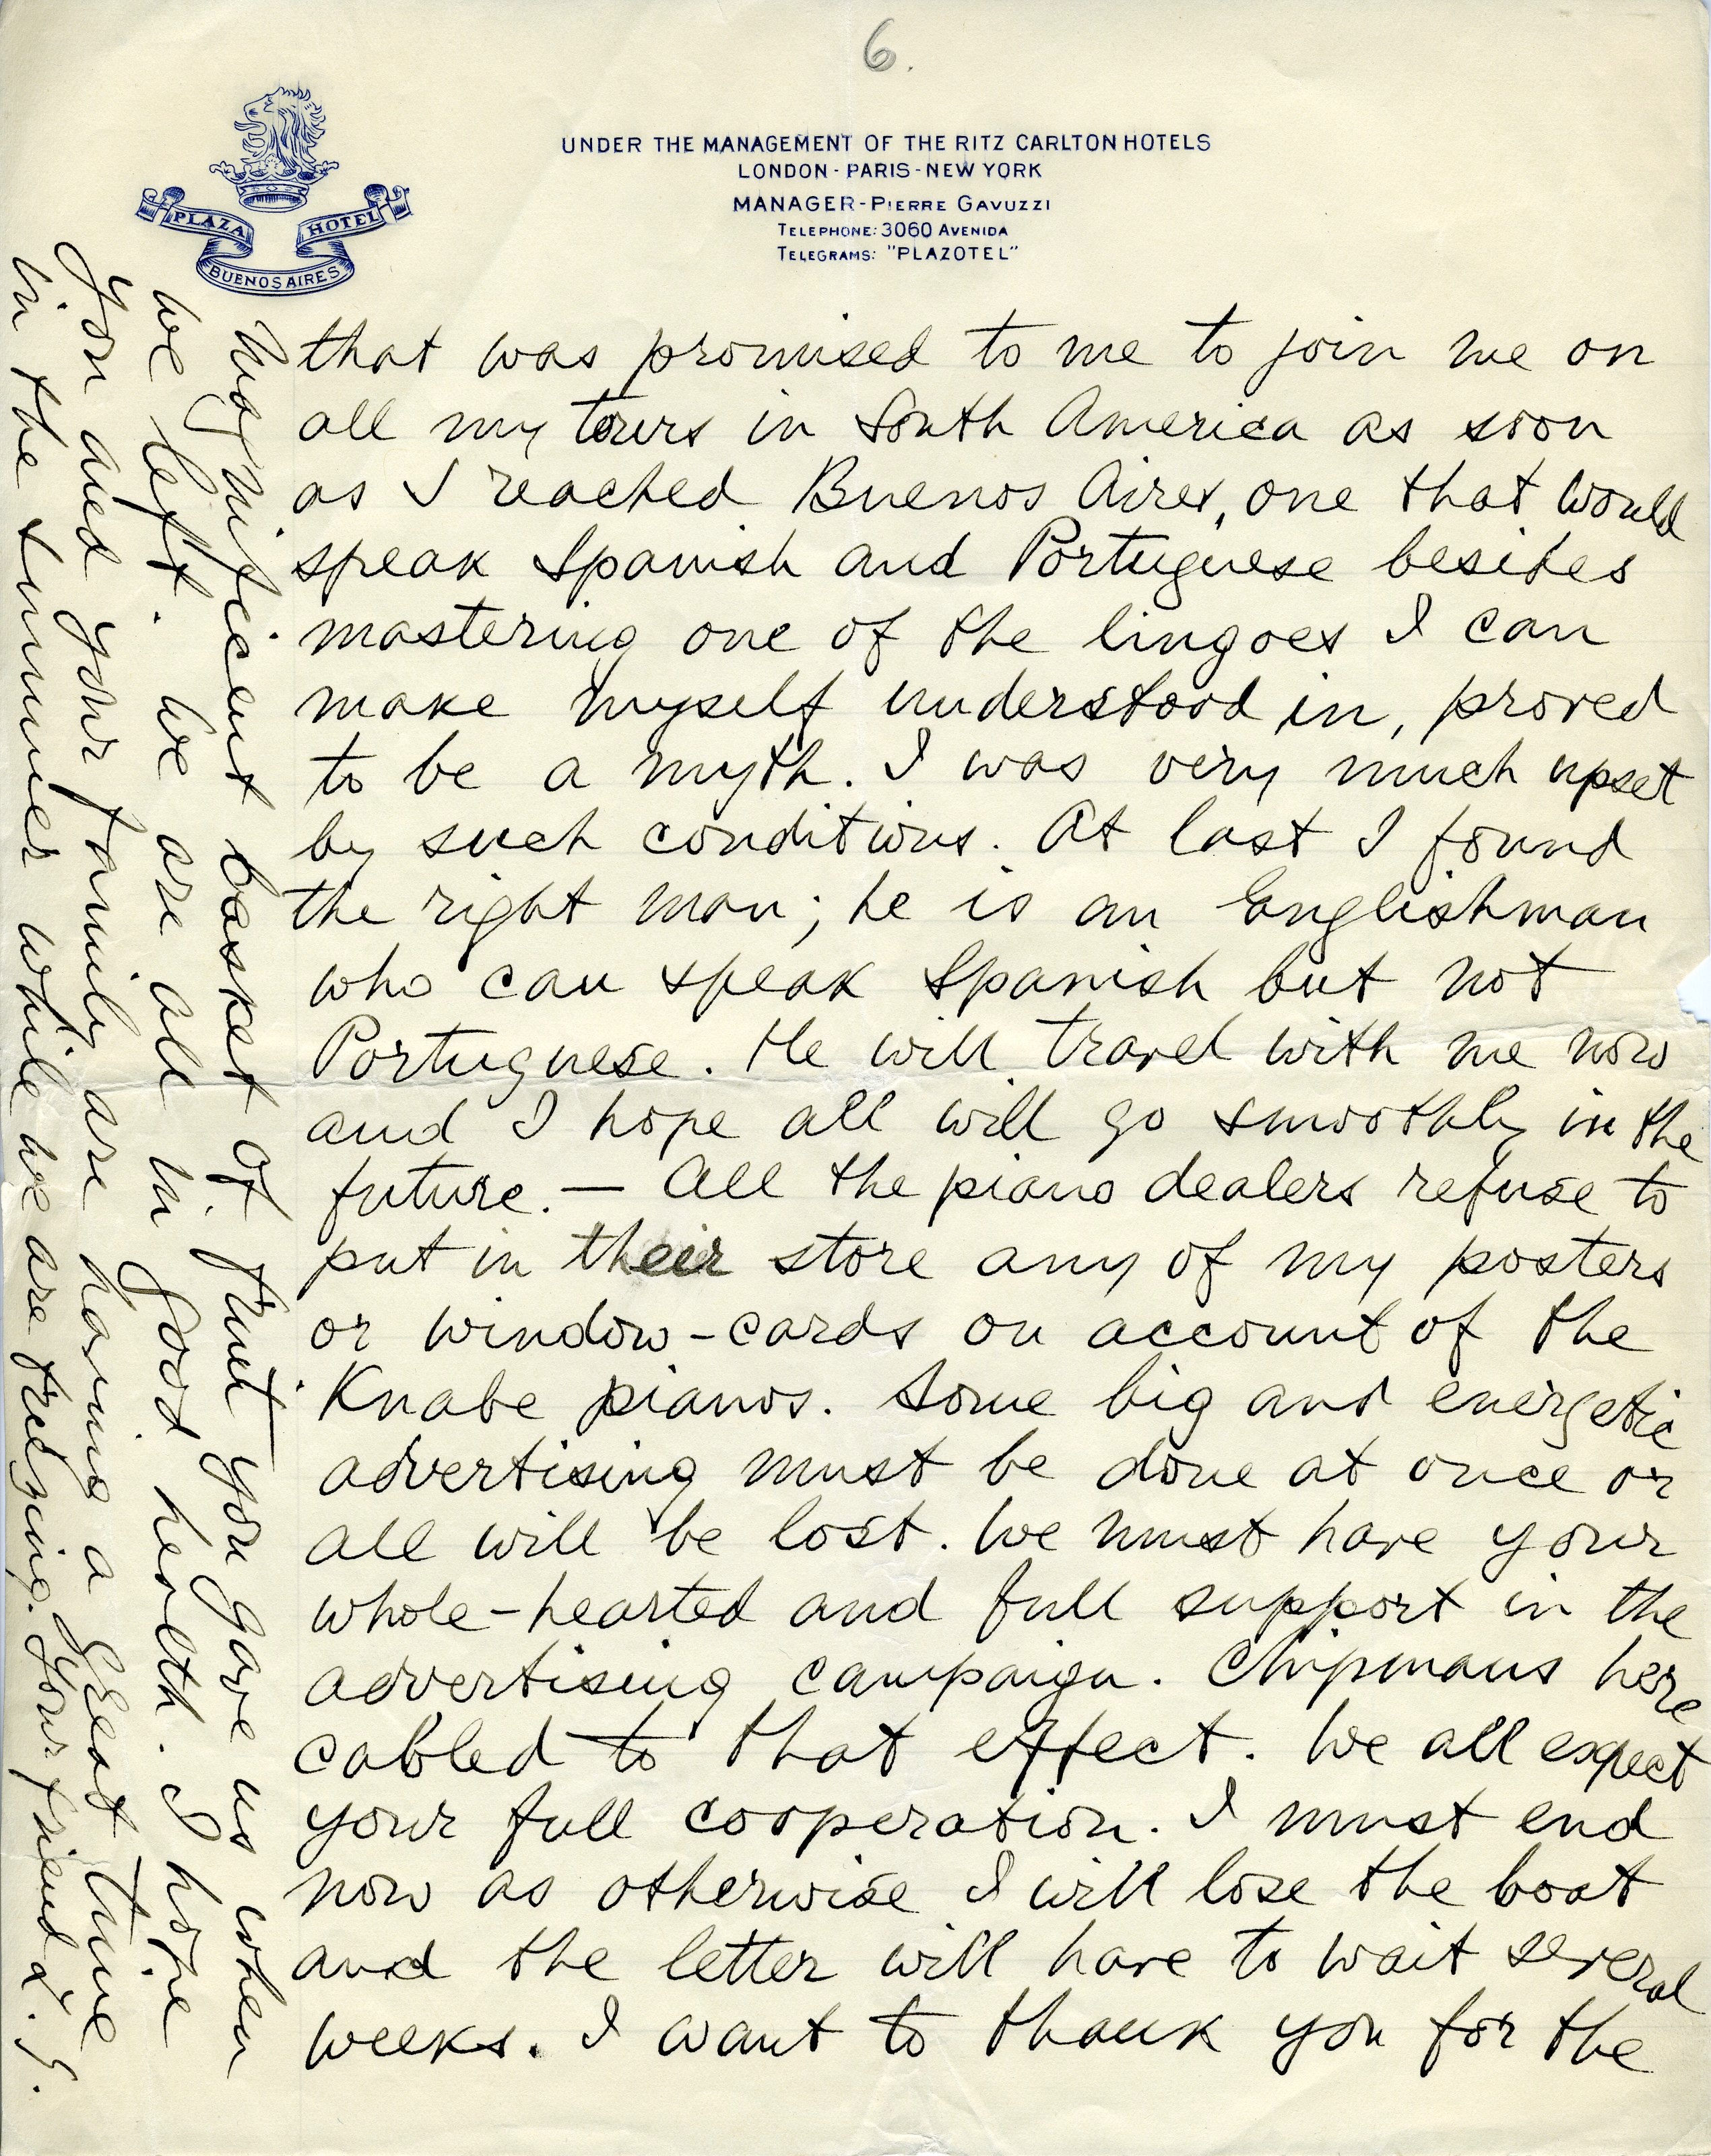 6.
PLAZA HOTEL
BUENOS AIRES
UNDER THE MANAGEMENT OF THE RITZ CARLTON HOTELS
LONDON - PARIS - NEW YORK
MANAGER - PIERRE GAVUZZI
TELEPHONE: 3060 AVENIDA
TELEGRAMS: "PLAZOTEL"
that was promised to me to join me on
all my tours in South America as soon
as I reached Buenos Aires, one that would
speak Spanish and Portuguese besides
mastering one of the lingoes I can
make myself understood in, proved
to be a myth. I was very much upset
by such conditions. At last I found
the right man; he is an Englishman
who can speak Spanish but not
Portuguese. He will travel with me now
and I hope all will go smoothly in the
future. — All the piano dealers refuse to
put in their store any of my posters
or window-cards on account of the
Knabe pianos. Some big and energetic
advertising must be done at once or
all will be lost. We must have your
whole-hearted and full support in the
advertising campaign. Chipmans here
cabled to that effect. We all expect
your full cooperation. I must end
now as otherwise I will lose the boat
and the letter will have to wait several
weeks. I want to thank you for the
magnificent basket of fruit you gave us when
we left. We are all in good health. I hope
you and your family are having a great time
in the summer while we are freezing. Your friend L. G.